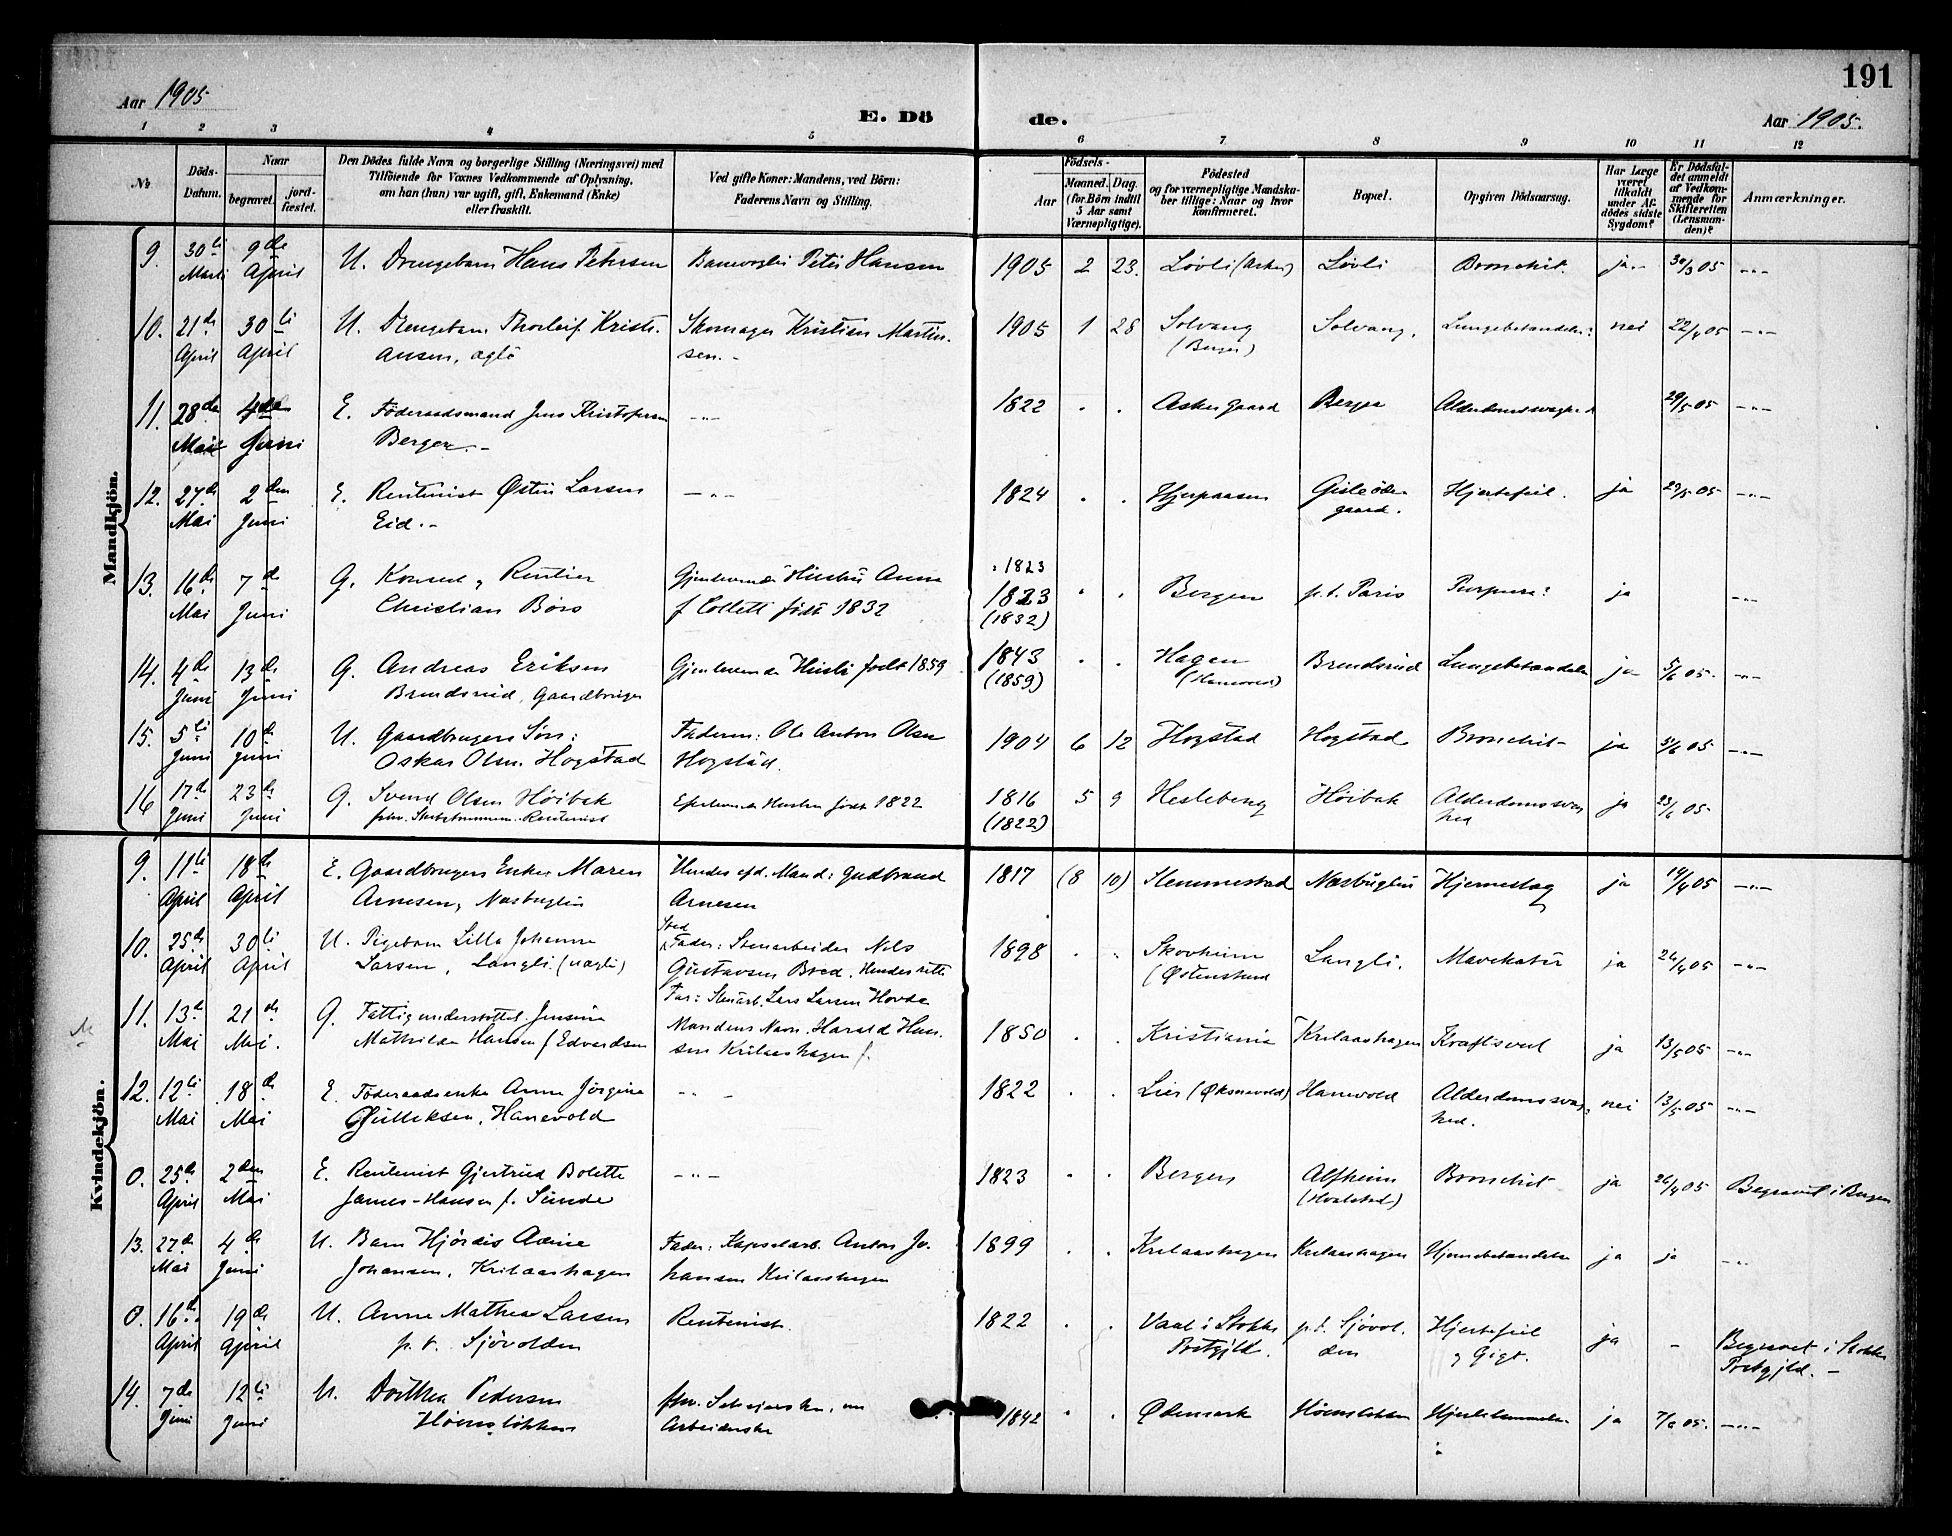 191
Aar 1905
E. Dö
de.
Aar 1905.
1 2 3 4 5 6 7 8 9 10 11 12
No.
Döds-
Datum.
Naar
begravet.
jord-
fæstet.
Den Dödes fulde Navn og borgerlige Stilling (Næringsvei) med
Tilföiende for Voxnes Vedkommende af Oplysning,
om han (hun) var ugift, gift, Enkemand (Enke)
eller fraskilt.
Ved gifte Koner: Mandens, ved Börn:
Faderens Navn og Stilling.
Födsels-
Aar
Maaned.
Dag.
(for Börn indtil
5 Aar samt
Værnepligtige).
Födested
og for værnepligtige Mandska-
ber tillige: Naar og hvor
konfirmeret.
Bopæl.
Opgiven Dödsaarsag.
Har Læge
været
tilkaldt
under Af-
dödes sidste
Sygdom?
Er Dödsfal-
det anmeldt
af Vedkom-
mende for
Skifteretten
(Lensman-
den)?
Anmærkninger.
Mandkjön.
9. 30te 9de U. Drengebarn Hans Petersen Peter Hansen 1905 2 23. Løvli (Asker) Løvli Bronchit. ja 30/3 05 -"-
Marts April
10. 21de 30te U. Drengebarn Thorleif Kristi- Skomager Kristian Martin- 1905 1 28 Solvang Solvang. nei 22/4 05 -"-
April April ansen, sen. - (Berger)
11. 28de 4de E. Föderaadsmand Jens Kristofersen -"- 1822 . . Asker gaard Berger 29/5 05 -"-
Mai Juni Berger. -
12. 27de 2den E. Rentenist Østen Larsen -"- 1824 . . Gisle öde- Hjertefeil. ja 29/5 05 -"-
Mai Juni Eid. - gaard.
13. 16de 7de G. Konsul, Rentier Gjenlevende Hustru Anna 1823 1823 " . Bergen p. t. Paris Purpura: ja -"-
Mai Juni Christian Börs f. Collett född 1832 (1832)
14. 4de 13de G. Andreas Eriksen Gjenlevende Hustru född 1859 1843 . . Hagen Brendsrud Lungebetændelse ja 5/6 05. -"-
Juni Juni Brendsrud, Gaardbruger (1859)
15. 5te 10de U. Gaardbrugers Sön: Faderen: Ole Anton Olsen 1904 6 12 Hogstad Hogstad Bronchit ja 5/6 05 -"-
Juni Juni Oskar Olsen Hogstad Hogstad.
16 17de 23de G. Svend Olsen Höibak Efterlevende Hustru född 1822 1816 5 9 Hesleberg Höibak Alderdomssvag- ja 23/6 05
Juni Juni Rentenist (1822) hed
Kvindekjön.
9. 11te 18de E. Gaardbrugers Enke Maren Hendes afd. Mand: Gudbrand 1817 (8 10) Slemmestad Næsbuglen Hjerneslag ja 14/4 05 -"-
April April Arnesen, Næsbuglen Arnesen
10. 25de 30te U. Pigebarn Lilla Johanne Sted Fader: Stenarbeider Nils 1898 . " Skovheim Langli. Mavekatar ja 26/4 05 -"-
April April Larsen, Langli. Gustavsen Bred. Hendes rette
Far: Stenarb. Lars Larsen Hovde
11. 13de 21de G. Fattigunderstöttet Jensine Mandens Navn: Harald Han- 1850 . . Kristiania Krilaashagen Kræftsvul ja 13/5 05 -"-
Mai Mai. Mathilde Hansen f. Edvardsen sen Krilaashagen
12. 12te 18de E. Föderaadsenke Anne Jörgine -"- 1822 . . Lier Hanevold Alderdomssvag- nei 13/5 05 -"-
Mai Mai Gulliksen, Hanevold hed.
0. 25de 2den E. Rentenist Gjertrud Bolette -"- 1823 " . Bergen Alfheim Bronchit ja 26/4 05 Begravet i Bergen
April Mai James-Hansen f. Sunde (Hvalstad)
13. 27de 4de U. Barn Hjördis Adine Fader: Kapselarb. Anton Jo- 1899 . . Krilaashagen Krilaashagen Hjernebetændelse ja ja -"-
Mai Juni Johansen, Krilaashagen hansen Krilaashagen
0. 16de 19de U. Anne Mathea Larsen Rentenist. 1822 . . i Stokke p. t. Sjövol- Hjertefeil ja - Begravet i Stokke
April April p. t. Sjövolden Prstgjld. den og Gigt. Prstgjld. -
14. 7de 12te U. Dorthea Pedersen fhv. 1842 " . Ödemark ja 7/6 05. -"-
Juni Juni Höenslökken Arbeiderske